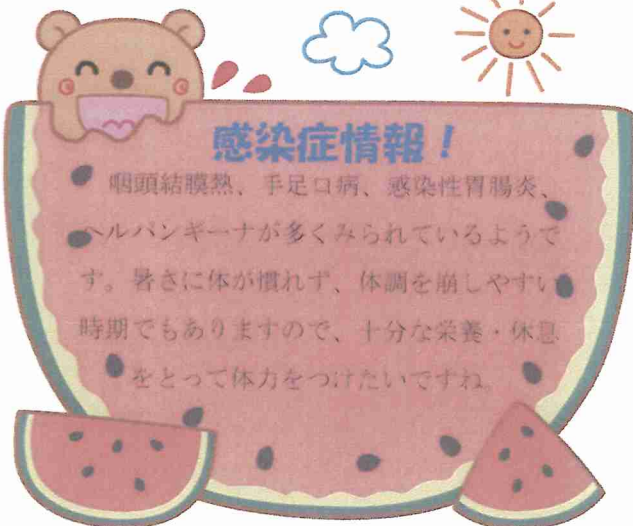 感染症情報！
咽頭結膜熱、手足口病、感染性胃腸炎、
ヘルパンギーナが多くみられているようで
す。暑さに体が慣れず、体調を崩しやすい
時期でもありますので、十分な栄養・休息
をとって体力をつけたいですね。